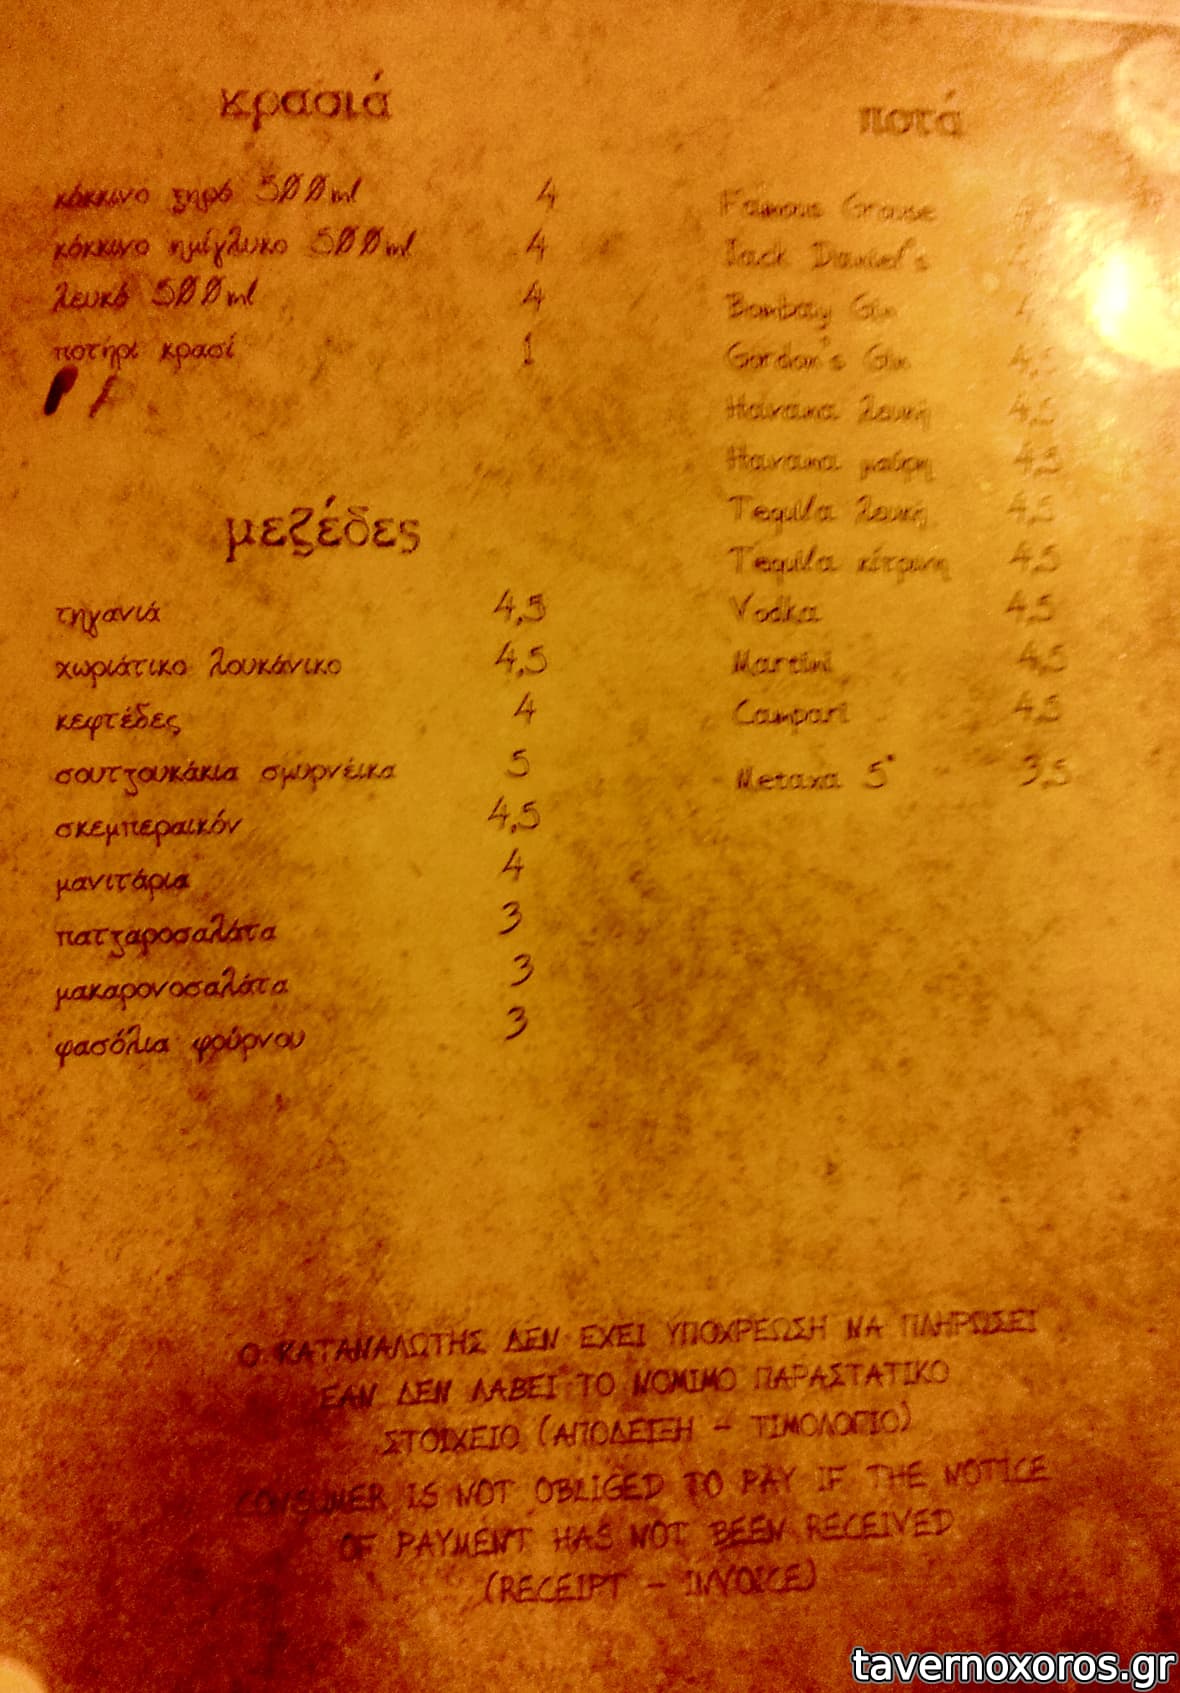 κρασιά
κόκκινο ξηρό 500ml 4
κόκκινο ημίγλυκο 500ml 4
λευκό 500ml 4
ποτήρι κρασί 1
μεζέδες
τηγανιά 4,5
χωριάτικο λουκάνικο 4,5
κεφτέδες 4
σουτζουκάκια σμυρνέικα 5
σκεμπεραικόν 4,5
μανιτάρια 4
πατζαροσαλάτα 3
μακαρονοσαλάτα 3
φασόλια φούρνου 3
ποτά
Famous Grouse
Jack Daniel's
Bombay Gin
Gordon's Gin 4,5
Havana λευκή 4,5
Havana μαύρη 4,5
Tequila λευκή 4,5
Tequila κίτρινη 4,5
Vodka 4,5
Martini 4,5
Campari 4,5
Metaxa 5* 3,5
Ο ΚΑΤΑΝΑΛΩΤΗΣ ΔΕΝ ΕΧΕΙ ΥΠΟΧΡΕΩΣΗ ΝΑ ΠΛΗΡΩΣΕΙ
ΕΑΝ ΔΕΝ ΛΑΒΕΙ ΤΟ ΝΟΜΙΜΟ ΠΑΡΑΣΤΑΤΙΚΟ
ΣΤΟΙΧΕΙΟ (ΑΠΟΔΕΙΞΗ - ΤΙΜΟΛΟΓΙΟ)
CONSUMER IS NOT OBLIGED TO PAY IF THE NOTICE
OF PAYMENT HAS NOT BEEN RECEIVED
(RECEIPT - INVOICE)
tavernoxoros.gr